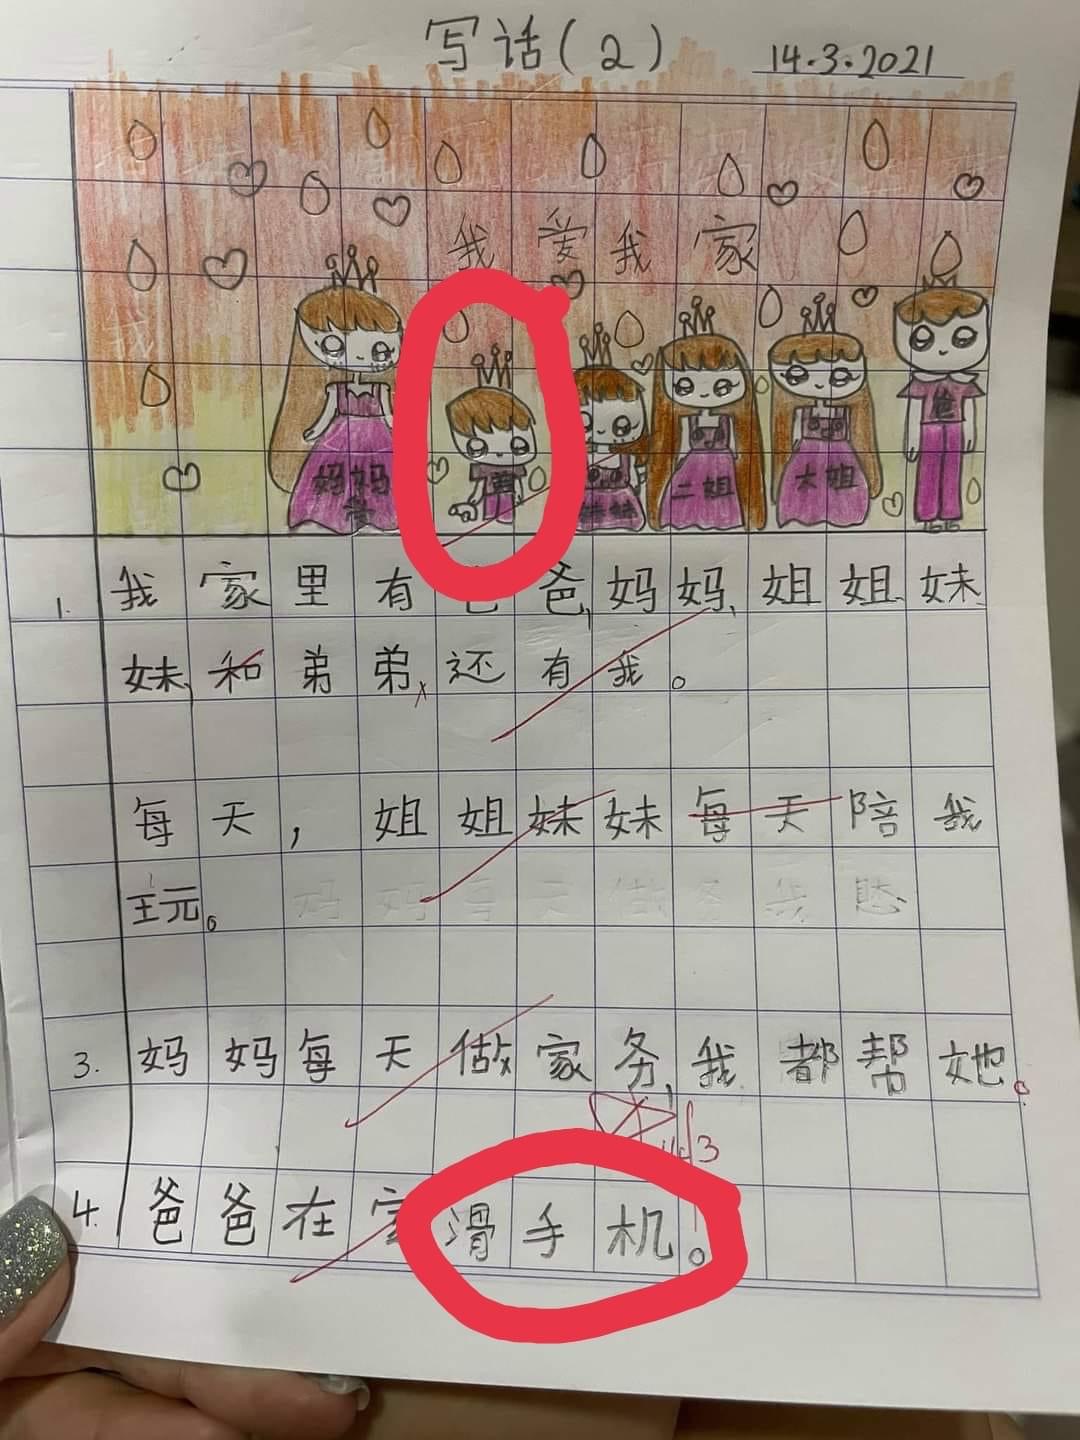 写话(2) 14.3.2021
我爱我家
妈妈
二姐
大姐
爸
1. 我家里有爸爸,妈妈、姐姐、妹
妹、和弟弟,还有我。
每天,姐姐妹妹每天陪我
玩。
3. 妈妈每天做家务,我都帮她。
11/3
4. 爸爸在家滑手机。